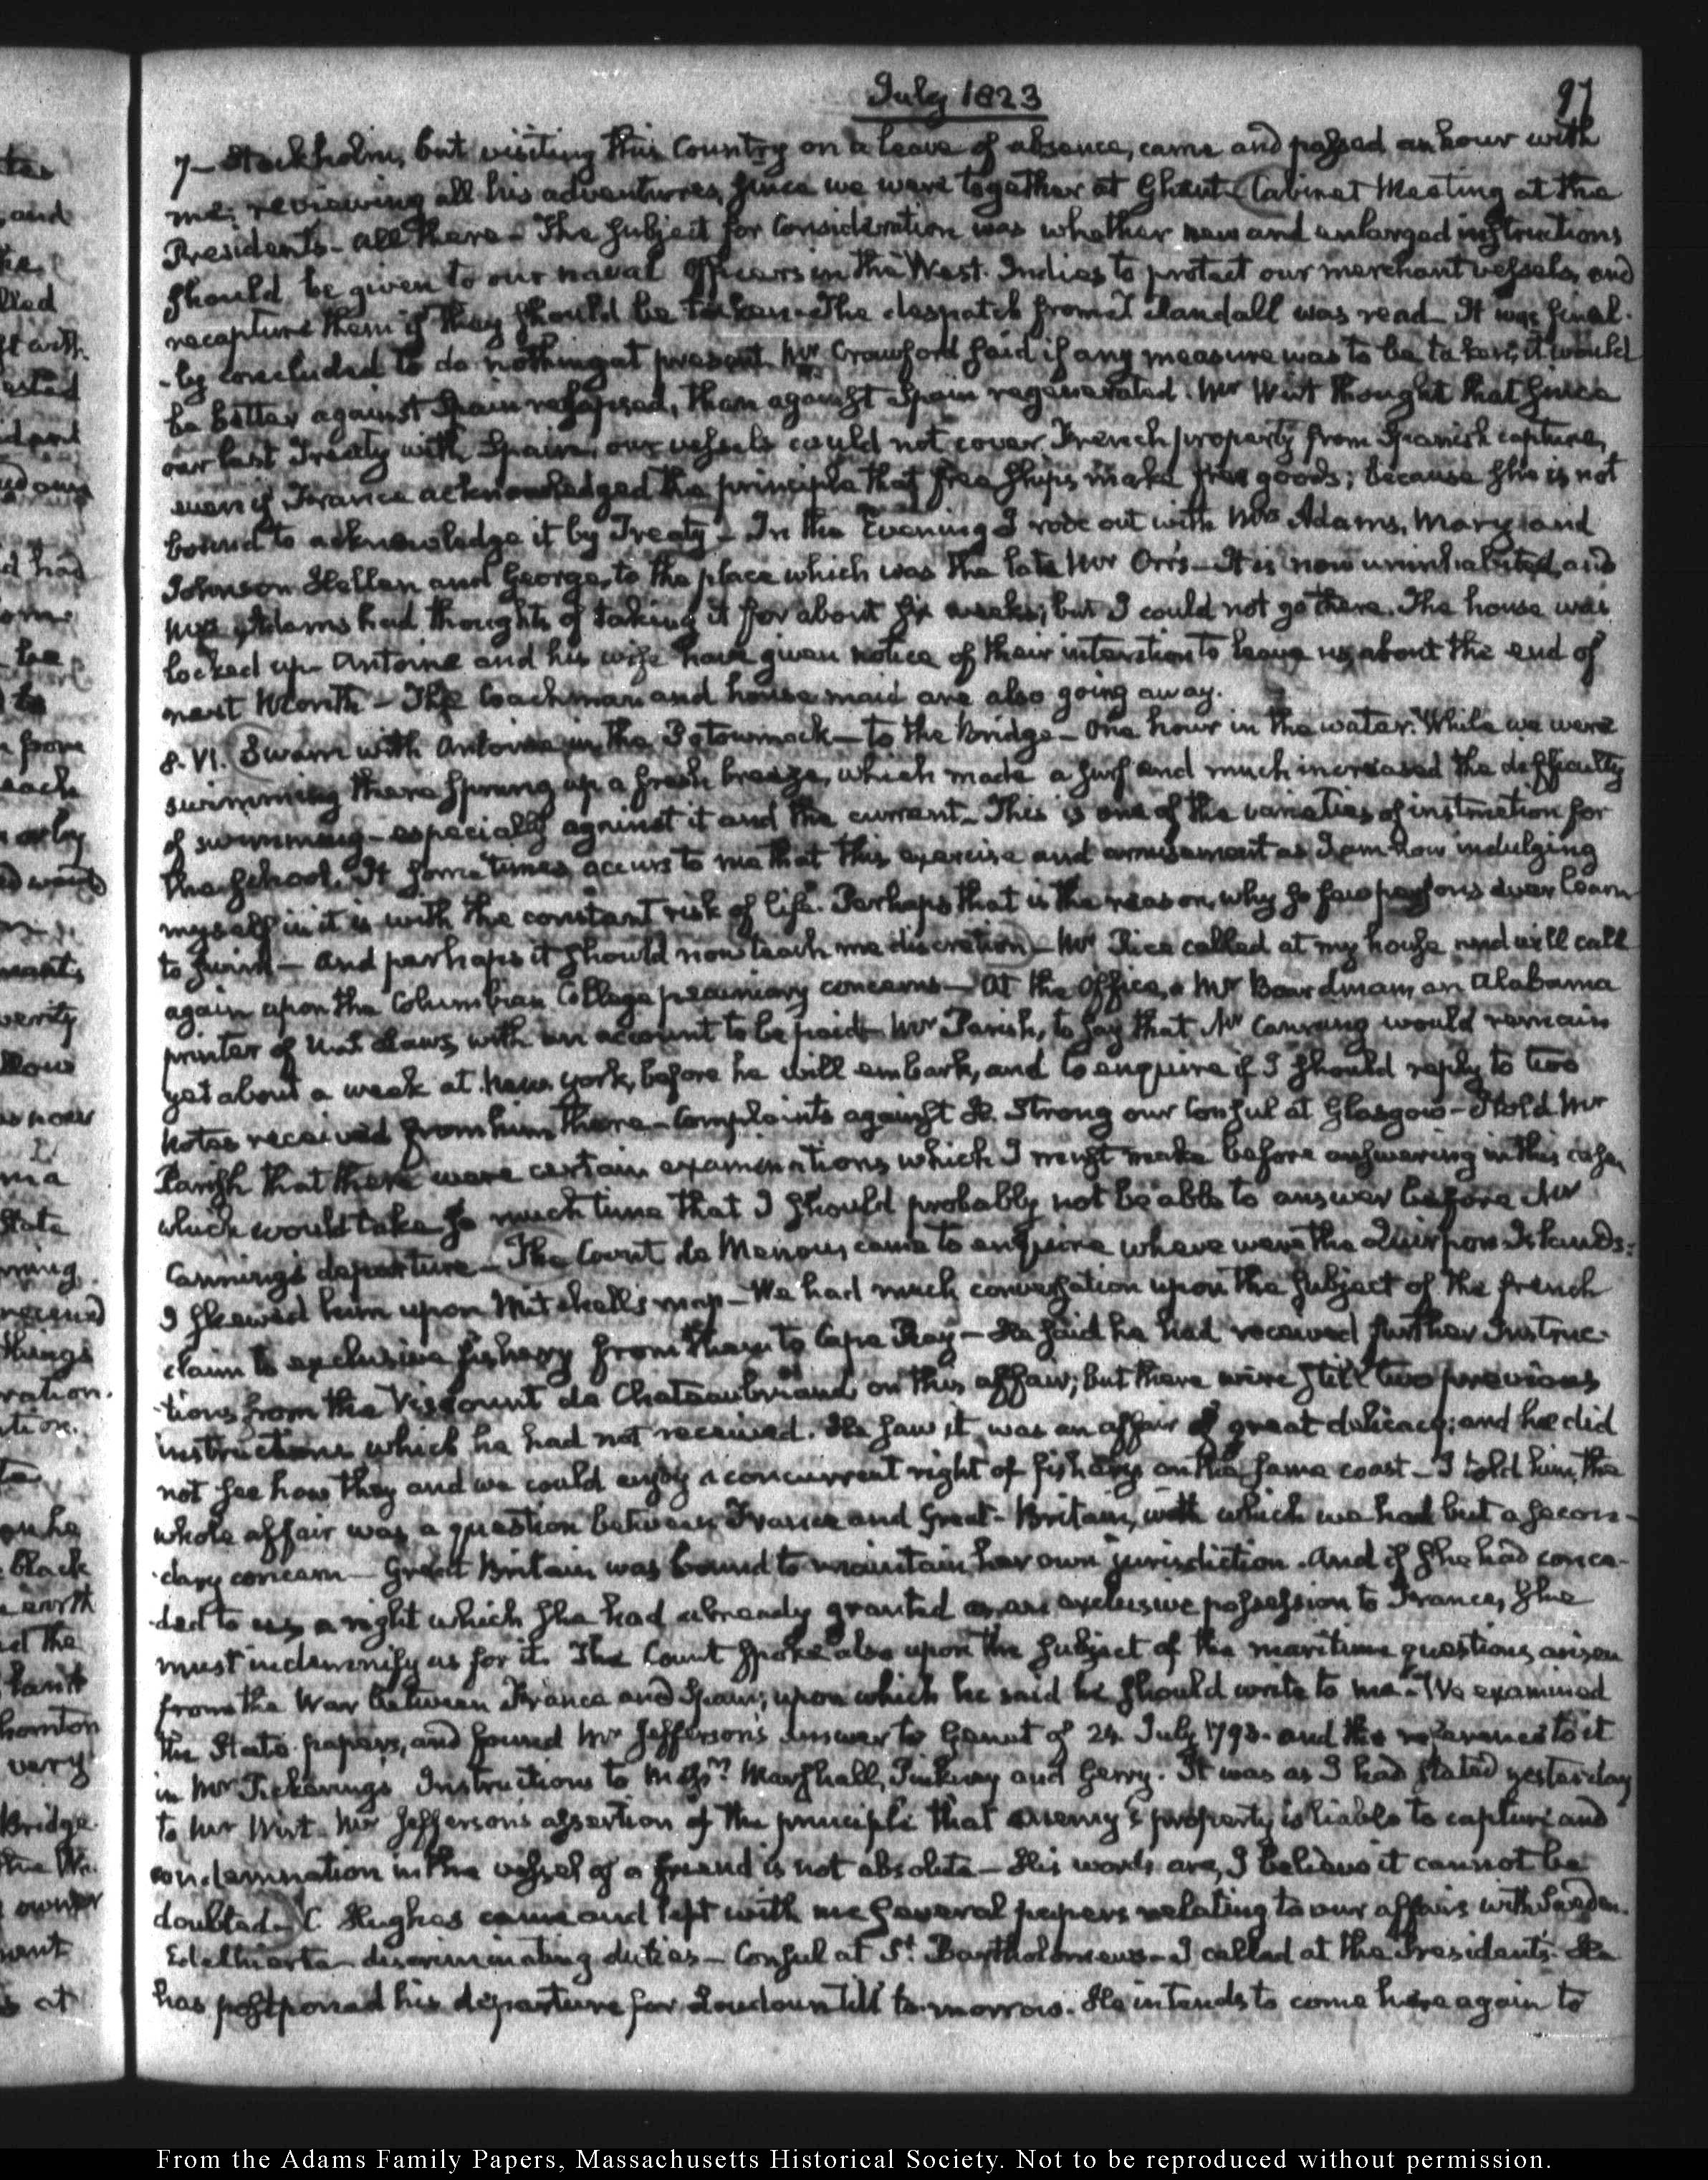 July 1823
97
7- Stockholm, but visiting this Country on a leave of absence, came and passed an hour with
me; reviewing all his adventures, since we were together at Ghent- Cabinet Meeting at the
Presidents- all there- The subject for consideration was whether new and enlarged instructions
should be given to our naval Officers in the West-Indies to protect our merchant vessels, and
recapture them if they should be taken- The despatch from T Randall was read- It was final-
-ly concluded to do nothing at present. Mr Crawford said if any measure was to be taken, it would
be better against Spain relapsed, than against Spain regenerated. Mr Wirt thought that since
our last Treaty with Spain, our vessels could not cover French property from Spanish capture,
even if France acknowledged the principle that free ships make free goods; because she is not
bound to acknowledge it by Treaty- In the Evening I rode out with Mrs Adams, Mary and
Johnson Hellen and George, to the place which was the late Mr Orr's- It is now uninhabited, and
Mrs Adams had thoughts of taking it for about six weeks; but I could not go there. The house was
locked up- Antoine and his wife have given notice of their intention to leave us, about the end of
next Month- The Coachman and house maid are also going away.
8. VI. Swam with Antoine in the Potowmack- to the Bridge- One hour in the water. While we were
swimming there sprung up a fresh breeze, which made a surf and much increased the difficulty
of swimming- especially against it and the current- This is one of the varieties of instruction for
the school. It sometimes occurs to me that this exercise and amusement as I am now indulging
myself in it is with the constant risk of life. Perhaps that is the reason, why so few persons ever learn
to swim- And perhaps it should now teach me discretion- Mr Rice called at my house and will call
again upon the Columbian College pecuniary concerns- At the Office, a Mr Boardman, an Alabama
printer of U.S. Laws, with an account to be paid- Mr Parish, to say that Mr Canning would remain
yet about a week at New York, before he will embark, and to enquire if I should reply to two
notes received from him there- Complaints against H. Strong our Consul at Glasgow- I told Mr
Parish that there were certain examinations which I must make before answering in this case,
which would take so much time that I should probably not be able to answer before Mr
Canning's departure- The Count de Menou, came to enquire where were the Quirpon Islands:
I shewed him upon Mitchell's map- We had much conversation upon the subject of the french
claim to exclusive fishery from them to Cape Ray- He said he had received further Instruc-
-tions from the Viscount de Chateaubriand on this affair; but there were still two previous
instructions which he had not received. He saw it was an affair of great delicacy; and he did
not see how they and we could enjoy a concurrent right of fishery on the same coast- I told him, the
whole affair was a question between France and Great-Britain, with which we had but a secon-
-dary concern- Great Britain was bound to maintain her own jurisdiction. And if she had conce-
-ded to us, a right which she had already granted as an exclusive possession to France, she
must indemnify us for it. The Count spoke also upon the subject of the maritime questions, arisen
from the War between France and Spain; upon which he said he should write to me- We examined
the State papers, and found Mr Jefferson's answer to Genet of 24 July 1793. and the reference to it
in Mr Pickering's Instructions to Messrs Marshall, Pinkney and Gerry. It was as I had stated yesterday
to Mr Wirt- Mr Jefferson's assertion of the principle that enemy's property is liable to capture and
condemnation in the vessel of a friend is not absolute- His words are, I believe it cannot be
doubted- C Hughes came and left with me several papers relating to our affairs with Sweden.
discriminating duties- Consul at St Bartholomews- I called at the Presidents. He
has postponed his departure for Loudoun till to-morrow. He intends to come here again to